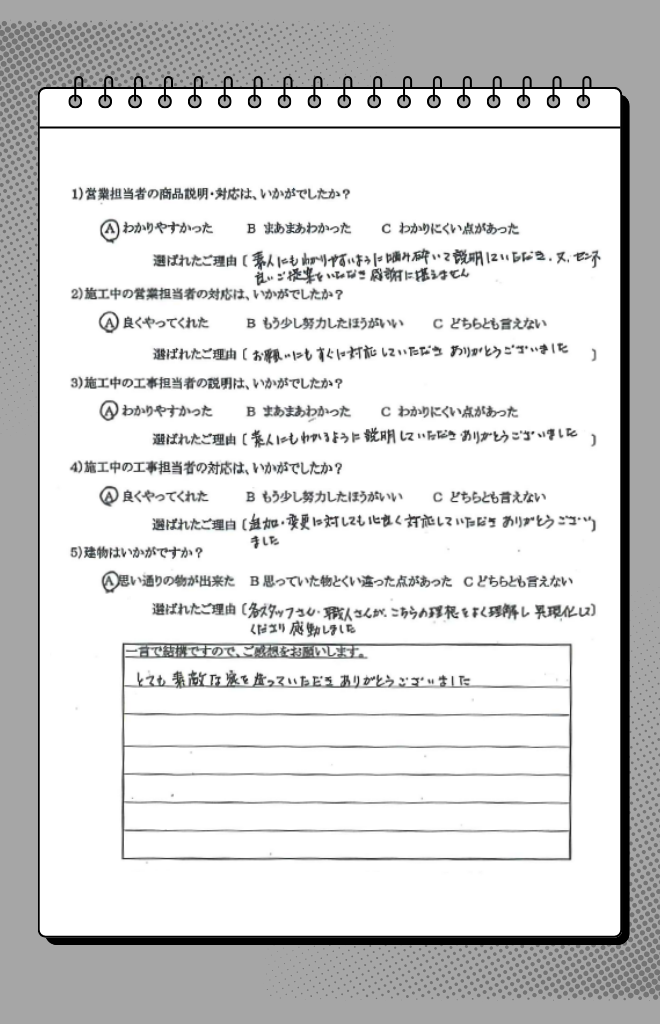 1)営業担当者の商品説明・対応は、いかがでしたか？
A わかりやすかった B まあまあわかった C わかりにくい点があった
選ばれたご理由〔素人にもわかりやすいように噛み砕いて説明していただき、又、センス
良いご提案をいただき感謝に堪えません
2)施工中の営業担当者の対応は、いかがでしたか？
A 良くやってくれた B もう少し努力したほうがいい C どちらとも言えない
選ばれたご理由〔お願いにもすぐに対応していただき ありがとうございました 〕
3)施工中の工事担当者の説明は、いかがでしたか？
A わかりやすかった B まあまあわかった C わかりにくい点があった
選ばれたご理由〔素人にもわかるように説明していただき ありがとうございました 〕
4)施工中の工事担当者の対応は、いかがでしたか？
A 良くやってくれた B もう少し努力したほうがいい C どちらとも言えない
選ばれたご理由〔追加・変更に対しても心良く対応していただき ありがとうござい〕
ました
5)建物はいかがですか？
A 思い通りの物が出来た B 思っていた物とくい違った点があった C どちらとも言えない
選ばれたご理由〔各スタッフさん・職人さんが、こちらの理想をよく理解し 具現化して〕
くださり 感動しました
一言で結構ですので、ご感想をお願いします。
とても 素敵な家を造っていただき ありがとうございました